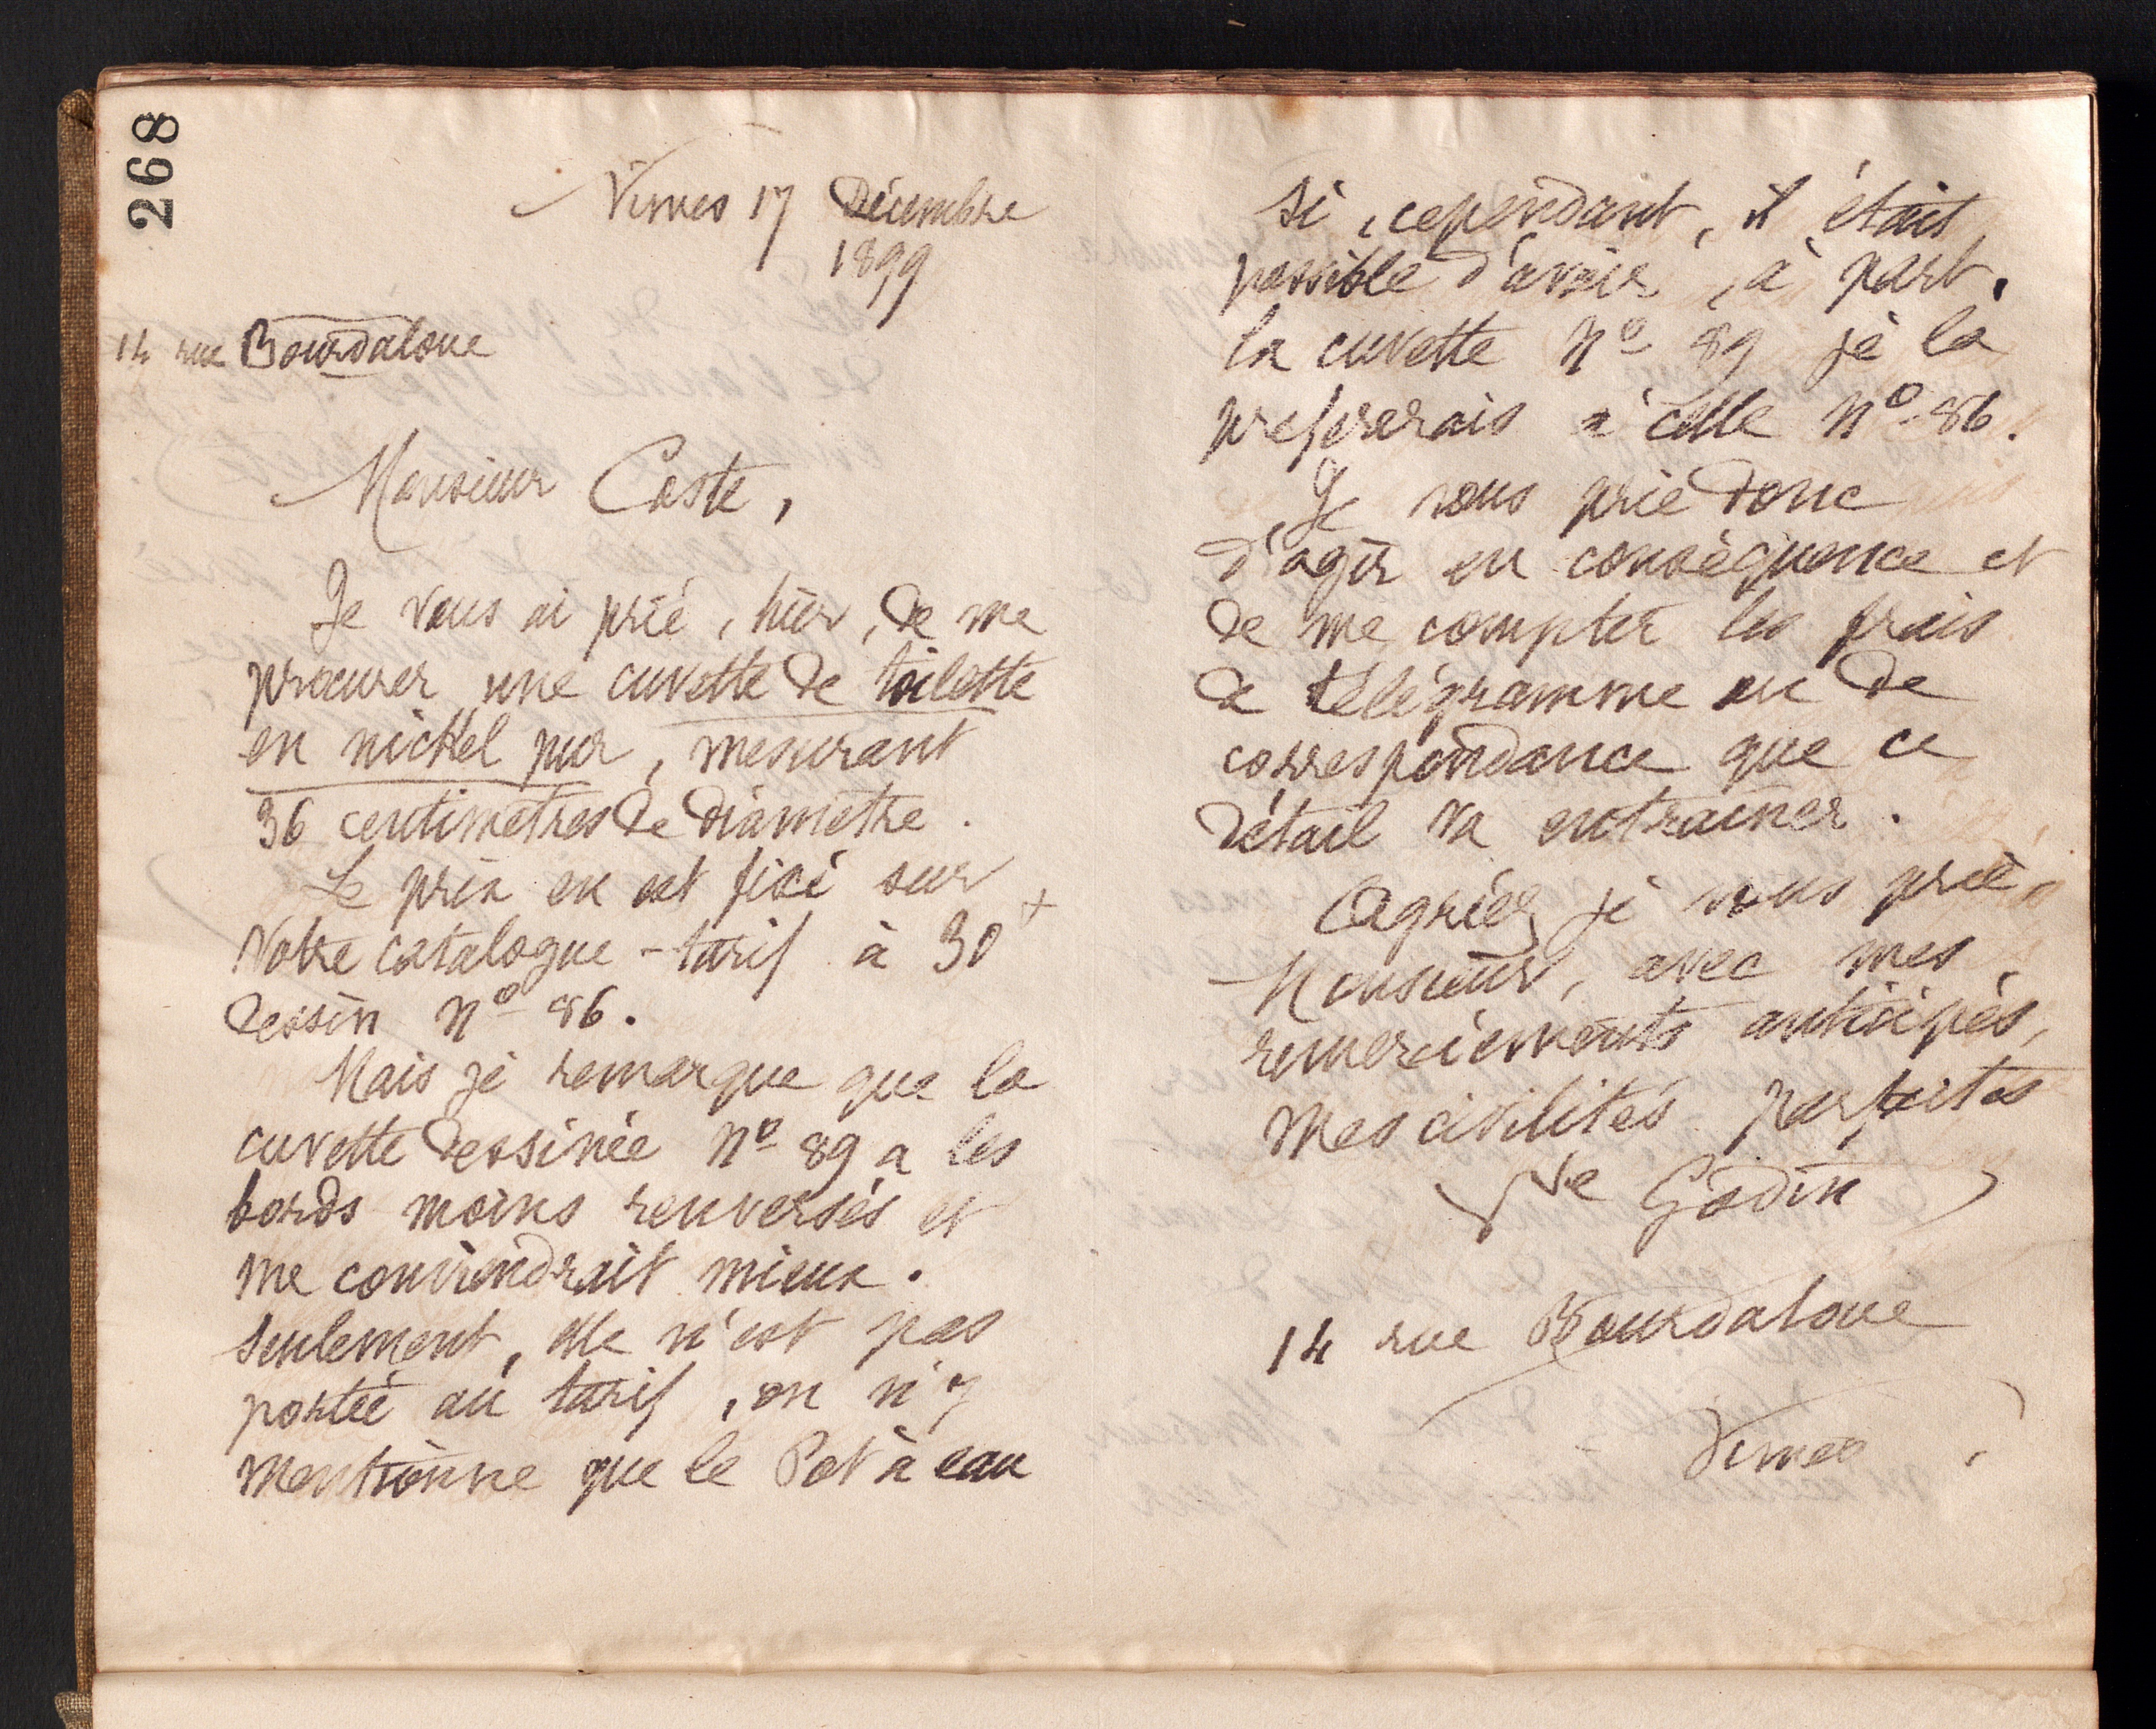 268
Nimes 17 Décembre
1899
14 rue Bourdaloue
Monsieur Caste,
Je vous ai prié, hier, de me
procurer une cuvette de toilette
en nickel pur, mesurant
36 centimètres de diamètre.
Le prix en est fixé sur
Votre catalogue-tarif à 30
dessin N° 86.
Mais je remarque que la
cuvette dessinée N° 89 a les
bords moins renversés et
me conviendrait mieux.
Seulement, elle n'est pas
portée au tarif, on n'y
mentionne que le Pot à eau
Si, cependant, il était
possible d'avoir, à part,
la cuvette N° 89 je la
prefererais à celle N° 86.
Je vous prie donc
d'agir en conséquence et
de me compter les frais
de télégramme ou de
correspondance que ce
détail va entraîner.
Agréez je vous prie
Monsieur, avec mes
remerciements anticipés,
mes civilités parfaites
Vve Godin
14 rue Bourdaloue
Nimes